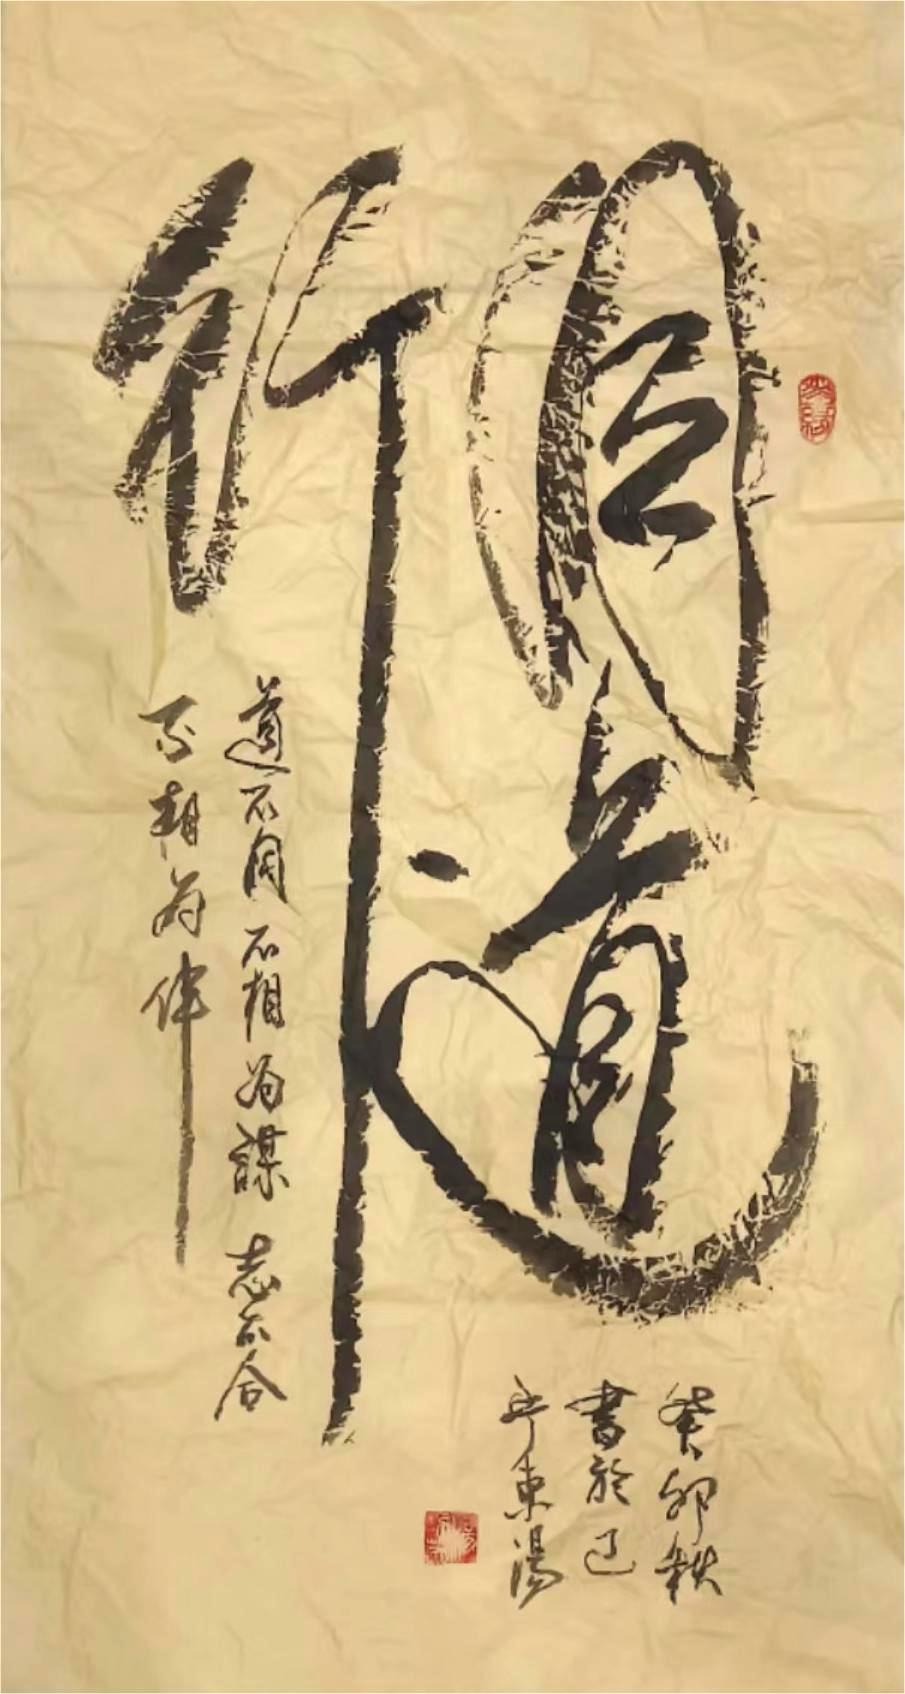 同道
行
道不同不相为謀 志不合
不相为伴
癸卯秋
書於辽
宁東湯